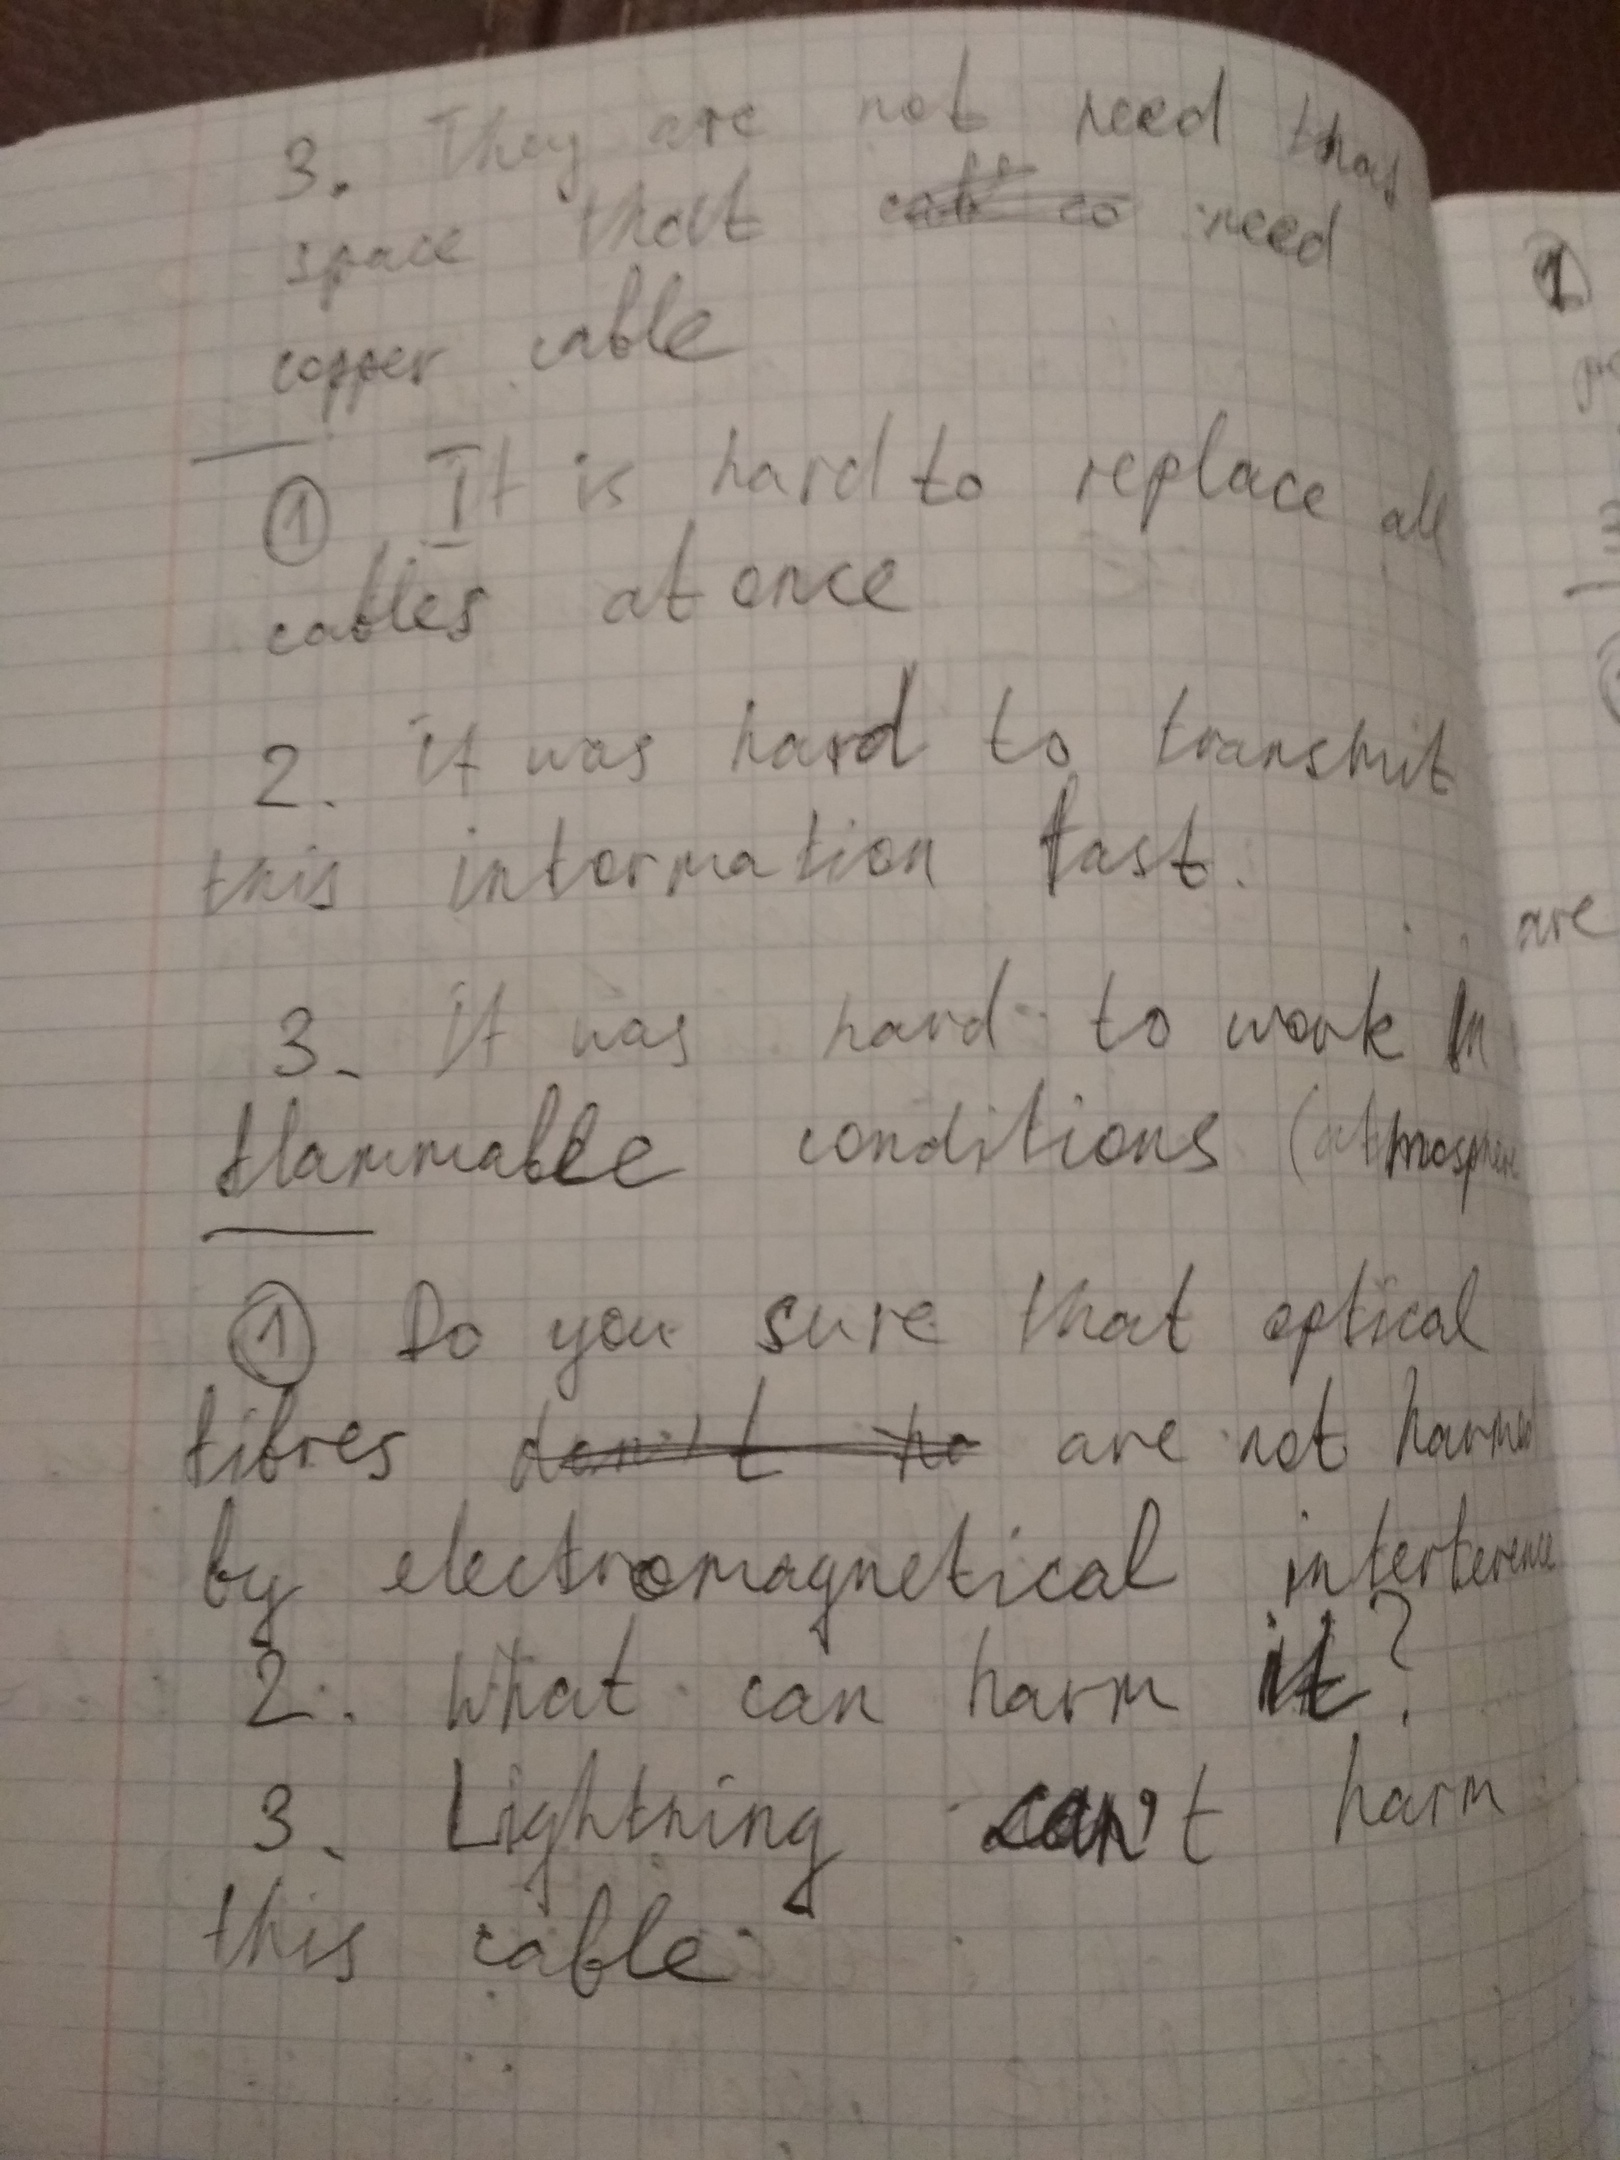 3. They are not need thas
space that need
copper cable
① It is hard to replace all
cables at once
2. it was hard to transmit
this information fast.
3. it was hard to work in
flammable conditions (atmosphere
① Do you sure that optical
fibres don't ha are not harmed
by electromagnetical interference
2. What can harm it?
3. Lightning can't harm
this cable
1
are